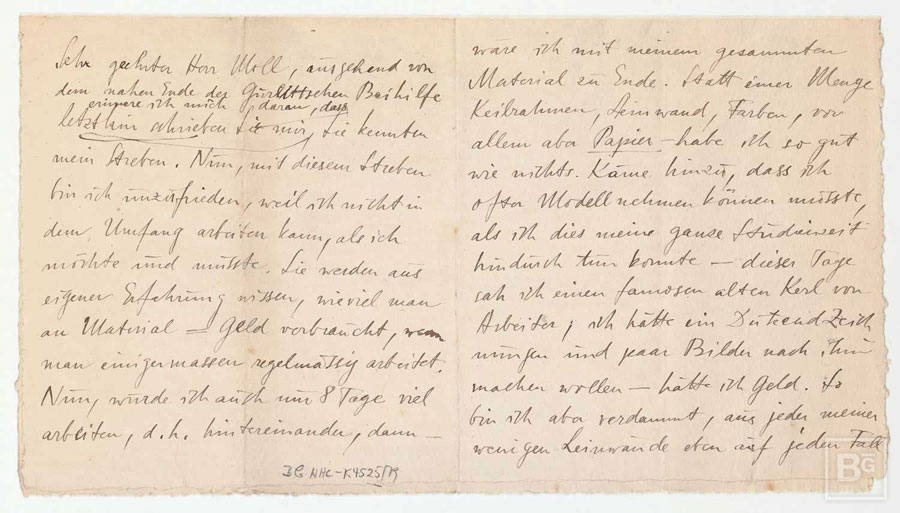 Sehr geehrter Herr Moll, ausgehend von
dem nahen Ende der Gurlittschen Beihilfe
erinnere ich mich daran, dass
letzthin schrieben Sie mir, Sie kennten
mein Streben. Nun, mit diesem Streben
bin ich unzufrieden, weil ich nicht in
dem Umfang arbeiten kann, als ich
möchte und müsste. Sie werden aus
eigener Erfahrung wissen, wieviel man
an Material = Geld verbraucht, wenn
man einigermassen regelmässig arbeitet.
Nun, würde ich auch nur 8 Tage viel
arbeiten, d. h. hintereinander, dann —
wäre ich mit meinem gesammten
Material zu Ende. Statt einer Menge
Keilrahmen, Leinwand, Farben, vor
allem aber Papier – habe ich so gut
wie nichts. Käme hinzu, dass ich
öfter Modell nehmen können müsste,
als ich dies meine ganze Studienzeit
hindurch tun konnte – dieser Tage
sah ich einen famosen alten Kerl von
Arbeiter; ich hätte ein Dutzend Zeich
nungen und paar Bilder nach ihm
machen wollen – hätte ich Geld. So
bin ich aber verdammt, aus jeder meiner
wenigen Leinwände eben auf jeden Fall
BG-NHC-K4525/79
BG